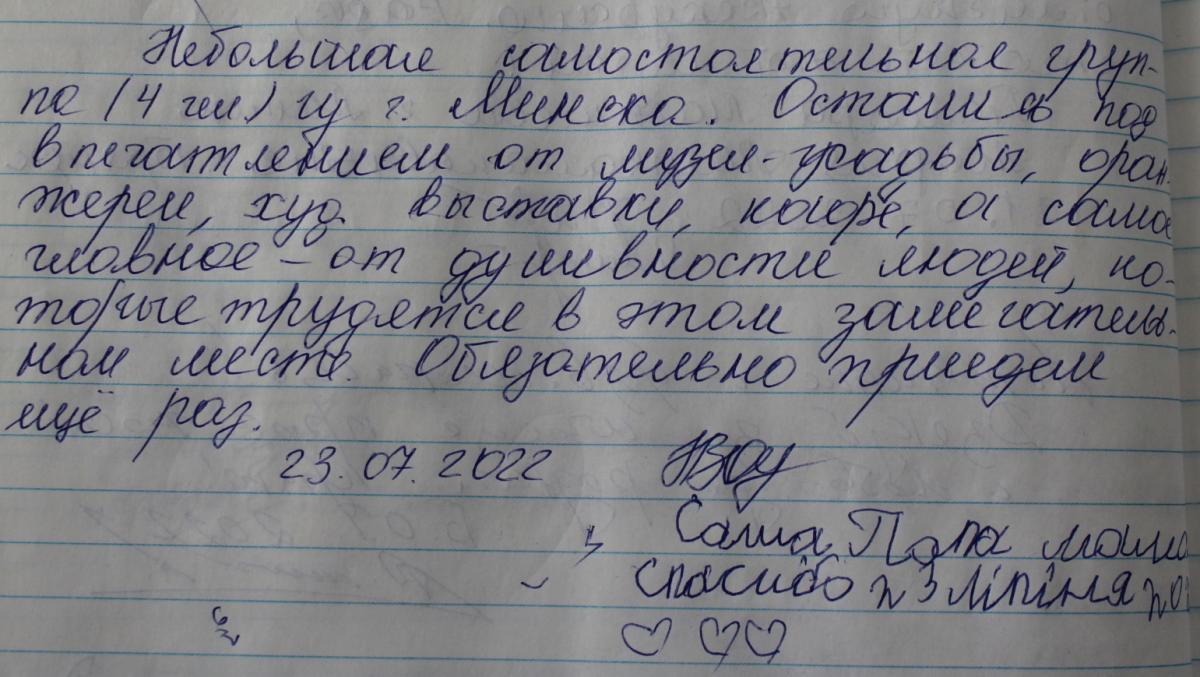 Небольшая самостоятельная груп-
па (4 чел) из г. Минска. Остались под
впечатлением от музея-усадьбы, оран-
жереи, худ. выставки, кафе, а самое
главное – от душевности людей, ко-
торые трудятся в этом замечатель-
ном месте. Обязательно приедем
ещё раз.
23.07.2022
Саша, Папа мама
спасибо 23 ліпіня 20